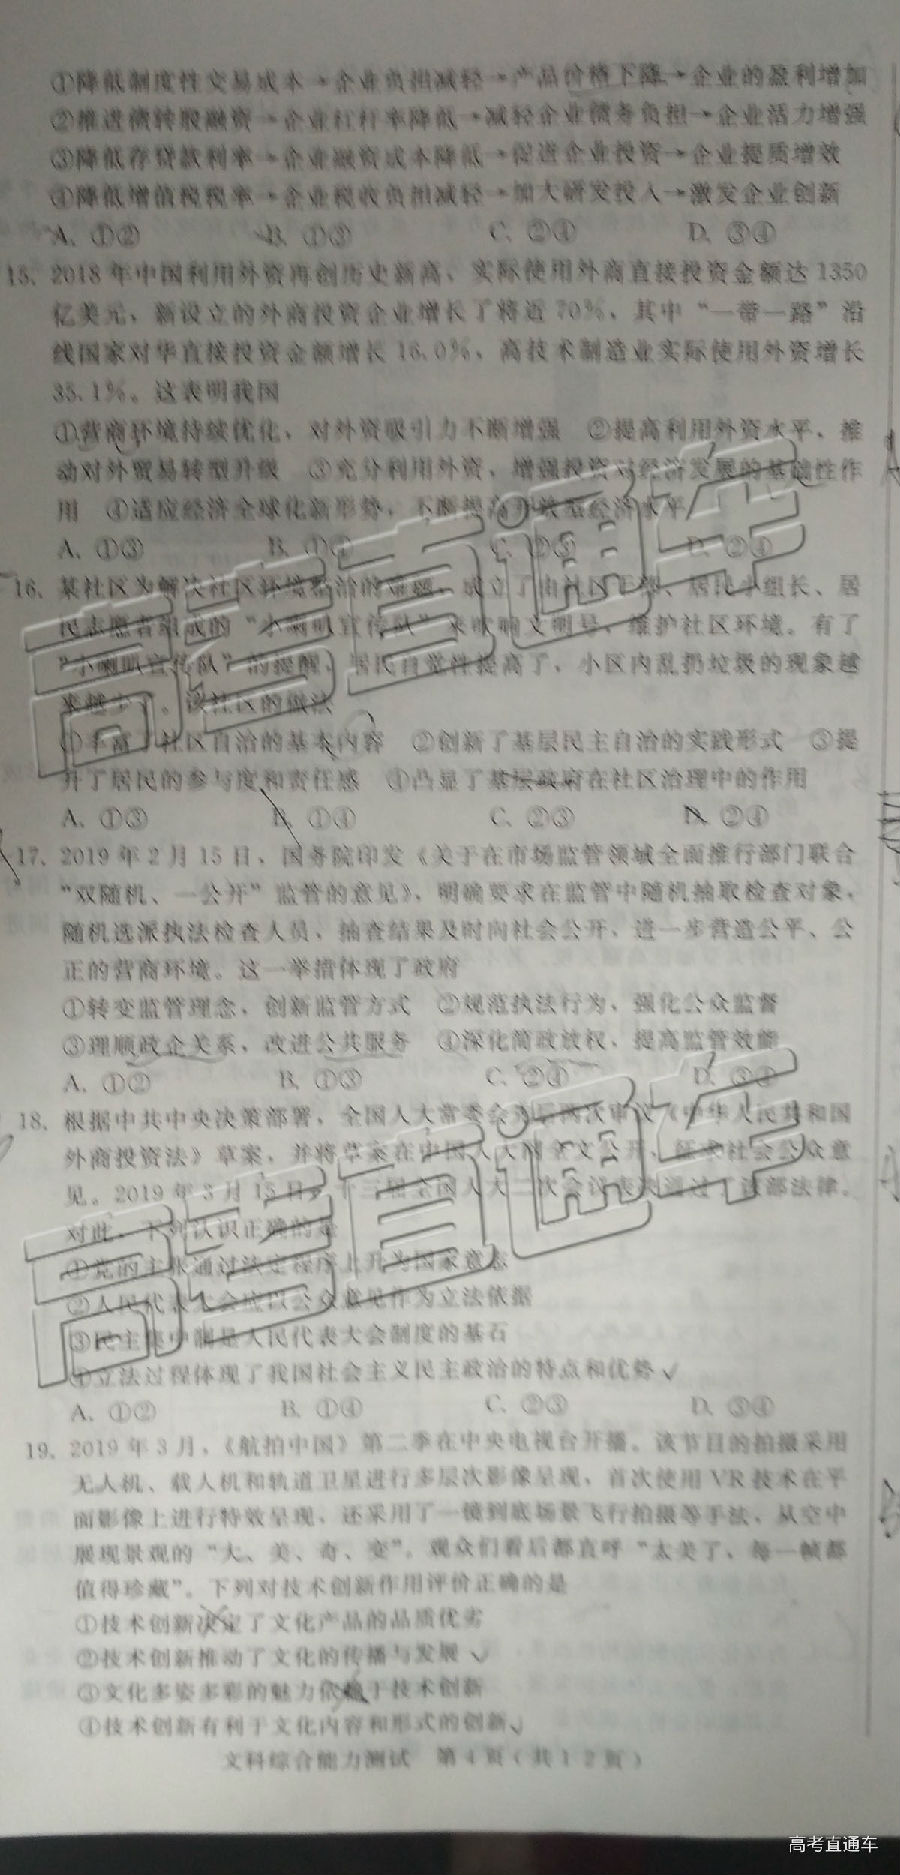 ①降低制度性交易成本→企业负担减轻→产品价格下降→企业的盈利增加
②推进债转股融资→企业杠杆率降低→减轻企业债务负担→企业活力增强
③降低存贷款利率→企业融资成本降低→促进企业投资→企业提质增效
④降低增值税税率→企业税收负担减轻→加大研发投入→激发企业创新
A. ①② B. ①③ C. ②④ D. ③④
15. 2018年中国利用外资再创历史新高，实际使用外商直接投资金额达1350
亿美元，新设立的外商投资企业增长了将近70%，其中“一带一路”沿
线国家对华直接投资金额增长16.0%，高技术制造业实际使用外资增长
35.1%。这表明我国
①营商环境持续优化，对外资吸引力不断增强 ②提高利用外资水平，推
动对外贸易转型升级 ③充分利用外资，增强投资对经济发展的基础性作
用 ④适应经济全球化新形势，不断提高开放型经济水平
A. ①③ B. ①④ C. ②③ D. ②④
16. 某社区为解决社区环境整治的难题，成立了由社区干部、居民小组长、居
民志愿者组成的“小喇叭宣传队”来吹响文明号，维护社区环境。有了
“小喇叭宣传队”的提醒，居民自觉性提高了，小区内乱扔垃圾的现象越
来越少了。该社区的做法
①丰富了社区自治的基本内容 ②创新了基层民主自治的实践形式 ③提
升了居民的参与度和责任感 ④凸显了基层政府在社区治理中的作用
A. ①③ B. ①④ C. ②③ D. ②④
17. 2019年2月15日，国务院印发《关于在市场监管领域全面推行部门联合
“双随机、一公开”监管的意见》，明确要求在监管中随机抽取检查对象，
随机选派执法检查人员，抽查结果及时向社会公开，进一步营造公平、公
正的营商环境。这一举措体现了政府
①转变监管理念，创新监管方式 ②规范执法行为，强化公众监督
③理顺政企关系，改进公共服务 ④深化简政放权，提高监管效能
A. ①② B. ①③ C. ②④ D. ③④
18. 根据中共中央决策部署，全国人大常委会先后两次审议《中华人民共和国
外商投资法》草案，并将草案在中国人大网全文公开，征求社会公众意
见。2019年3月15日，十三届全国人大二次会议表决通过了这部法律。
对此，下列认识正确的是
①党的主张通过法定程序上升为国家意志
②人民代表大会应以公众意见作为立法依据
③民主集中制是人民代表大会制度的基石
④立法过程体现了我国社会主义民主政治的特点和优势
A. ①② B. ①④ C. ②③ D. ③④
19. 2019年3月，《航拍中国》第二季在中央电视台开播。该节目的拍摄采用
无人机、载人机和轨道卫星进行多层次影像呈现，首次使用VR技术在平
面影像上进行特效呈现，还采用了一镜到底场景飞行拍摄等手法，从空中
展现景观的“大、美、奇、变”。观众们看后都直呼“太美了，每一帧都
值得珍藏”。下列对技术创新作用评价正确的是
①技术创新决定了文化产品的品质优劣
②技术创新推动了文化的传播与发展
③文化多姿多彩的魅力依赖于技术创新
④技术创新有利于文化内容和形式的创新
文科综合能力测试 第4页(共12页)
高考直通车
高考直通车
高考直通车